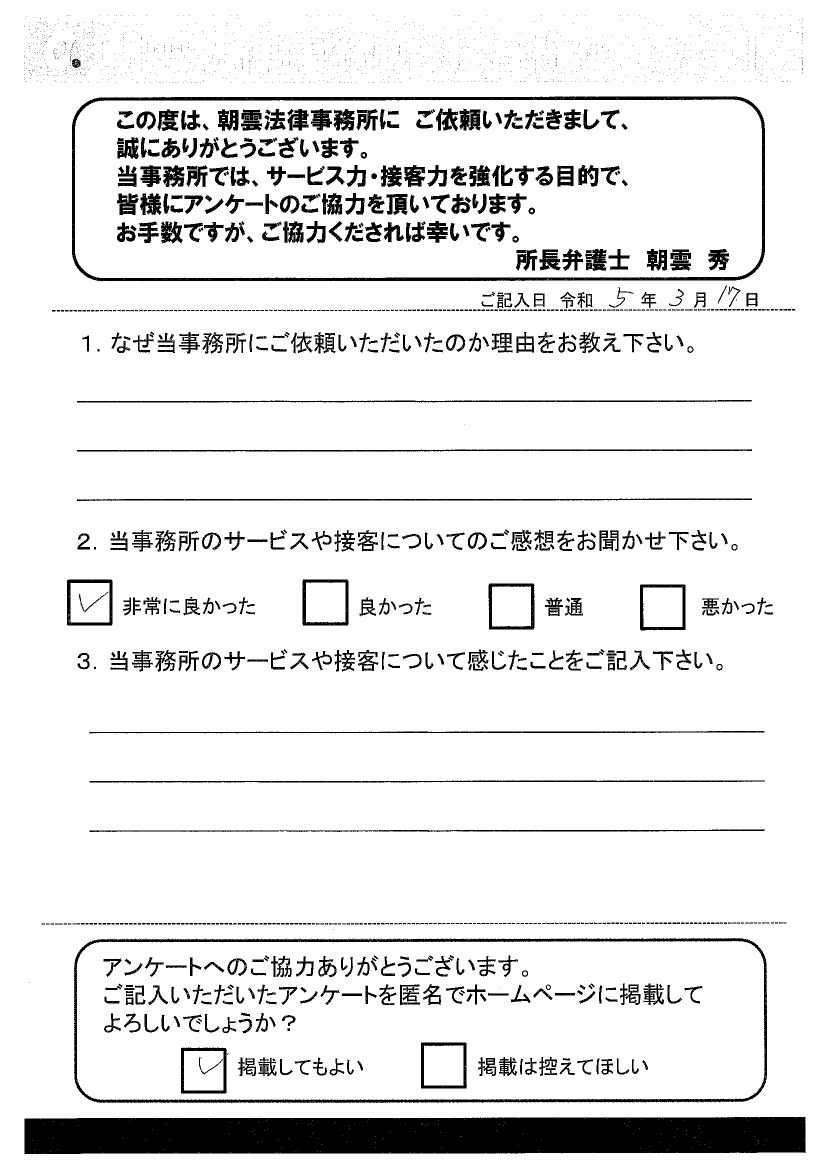 この度は、朝雲法律事務所に　ご依頼いただきまして、
誠にありがとうございます。
当事務所では、サービス力・接客力を強化する目的で、
皆様にアンケートのご協力を頂いております。
お手数ですが、ご協力くだされば幸いです。
所長弁護士　朝雲　秀
ご記入日 令和 5 年 3 月 17 日
1. なぜ当事務所にご依頼いただいたのか理由をお教え下さい。
2. 当事務所のサービスや接客についてのご感想をお聞かせ下さい。
非常に良かった　良かった　普通　悪かった
3. 当事務所のサービスや接客について感じたことをご記入下さい。
アンケートへのご協力ありがとうございます。
ご記入いただいたアンケートを匿名でホームページに掲載して
よろしいでしょうか？
掲載してもよい　掲載は控えてほしい